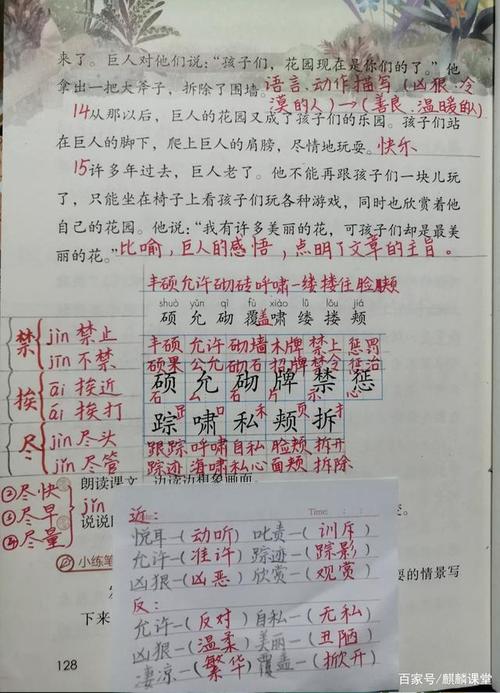 来了。巨人对他们说:“孩子们,花园现在是你们的了。”他
拿出一把大斧子,拆除了围墙。语言、动作描写(凶狠、冷
漠的人)→(善良、温暖的人)
14从那以后,巨人的花园又成了孩子们的乐园。孩子们站
在巨人的脚下,爬上巨人的肩膀,尽情地玩耍。快乐
15许多年过去,巨人老了。他不能再跟孩子们一块儿玩
了,只能坐在椅子上看孩子们玩各种游戏,同时也欣赏着他
自己的花园。他说:“我有许多美丽的花,可孩子们却是最美
丽的花。”比喻,巨人的感悟,点明了文章的主旨。
丰硕允许砌砖呼啸一缕搂住脸颊
shuò yǔn qì fù xiào lǚ lǒu jiá
硕 允 砌 覆盖 啸 缕 搂 颊
禁 jìn 禁止
jīn 不禁
挨 āi 挨近
ái 挨打
尽 jìn 尽头
jǐn 尽管
②尽快
③尽早 jǐn
④尽量
丰硕 允许 砌墙 木牌 禁止 惩罚
硕果 公允 砌石 招牌 禁令 惩治
硕 允 砌 牌 禁 惩
踪 啸 私 颊 拆
跟踪 呼啸 自私 脸颊 拆开
踪迹 海啸 私心 面颊 拆除
朗读课文,边读边想象画面。
说说
小练笔
要的情景写
下来
Time:
近:
悦耳—(动听) 叱责—(训斥)
允许—(准许) 踪迹—(踪影)
凶狠—(凶恶) 欣赏—(观赏)
反:
允许—(反对) 自私—(无私)
凶狠—(温柔) 美丽—(丑陋)
凄凉—(繁华) 覆盖—(掀开)
128
百家号/麒麟课堂